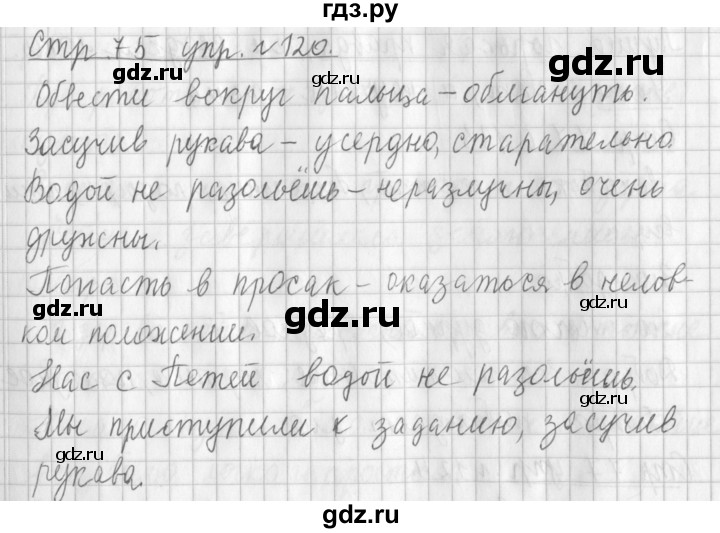 гдз.ру
Стр 75 упр. №120.
gdz.ru gdz.ru
Обвести вокруг пальца – обмануть.
Засучив рукава – усердно, старательно.
gdz.ru gdz.ru
Водой не разольёшь – неразлучны, очень
дружны.
Попасть в просак – оказаться в нелов-
gdz.ru gdz.ru gdz.ru
ком положении.
Нас с Петей водой не разольёшь.
gdz.ru gdz.ru
Мы приступили к заданию, засучив
рукава.
gdz.ru gdz.ru
gdz.ru